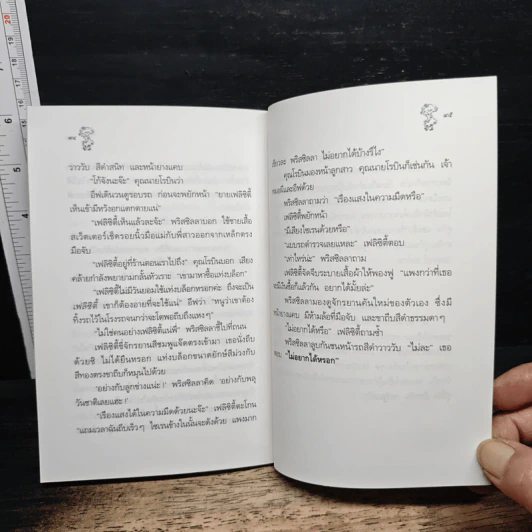 วาววับ สีดำสนิท และหน้ายางแคบ
"โก้จังนะจ๊ะ" คุณนายโรบินว่า
อีฟเดินวนดูรอบรถ ก่อนจะพยักหน้า "ยายเฟลิซิตี้
เห็นเข้ามีหวังอกแตกตายแน่"
"เฟลิซิตี้เห็นแล้วละจ้ะ" พริสซิลลาบอก ใช้ชายเสื้อ
สเวตเตอร์เช็ดรอยนิ้วมือแม่กับพี่สาวออกจากเหล็กตรง
มือจับ
"เฟลิซิตี้อยู่ที่ร้านตอนเราไปถึง" คุณโรบินบอก เสียง
คล้ายกำลังพยายามกลั้นหัวเราะ "เขามาหาซื้อแท่งบล็อก"
"เฟลิซิตี้ไม่มีวันยอมใช้แท่งบล็อกหรอกค่ะ ถึงจะเป็น
เฟลิซิตี้ เขาก็ต้องอายที่จะใช้แน่" อีฟว่า "หนูว่าเขาต้อง
ทิ้งรถไว้ในโรงรถจนกว่าจะโตพอถีบถึงแหงๆ"
"ไม่ใช่คนอย่างเฟลิซิตี้แน่พี่" พริสซิลลาชี้ไปที่ถนน
เฟลิซิตี้ขี่จักรยานสีชมพูแจ๊ดตรงเข้ามา เธอนั่งถีบ
ด้วยซิ ไม่ได้ยืนหรอก แท่งบล็อกขนาดยักษ์สีม่วงกับ
สีทองตรงขาถีบก็หมุนไปด้วย
'อย่างกับลูกช่างแน่ะ !' พริสซิลลาคิด 'อย่างกับพลุ
วันชาติเลยแฮะ !'
"เรืองแสงได้ในความมืดด้วยนะจ๊ะ" เฟลิซิตี้ตะโกน
"แถมเวลาฉันถีบเร็วๆ ไซเรนข้างในนั้นจะดังด้วย แพงมาก
พริสซิลลา ไม่อยากได้บ้างรึไง"
คุณโรบินมองหน้าลูกสาว คุณนายโรบินก็เช่นกัน เจ้า
พริสซิลลาถามว่า "เรืองแสงในความมืดหรือ"
เฟลิซิตี้พยักหน้า
"มีเสียงไซเรนด้วยหรือ"
"แบบรถตำรวจเลยแหละ" เฟลิซิตี้ตอบ
"เท่าไหร่น่ะ" พริสซิลลาถาม
เฟลิซิตี้จัดจีบระบายเสื้อผ้าให้พองฟู "แพงกว่าที่เธอ
อยากได้มั้ยล่ะ"
พริสซิลลามองดูจักรยานคันใหม่ของตัวเอง ซึ่งมี
หน้ายางแคบ มีห้ามล้อที่มือจับ และขาถีบสีดำธรรมดาๆ
"ไม่อยากได้หรือ" เฟลิซิตี้ถามซ้ำ
พริสซิลลาลูบกันชนหน้ารถสีดำวาววับ "ไม่ละ" เธอ
ตอบ "ไม่อยากได้หรอก"